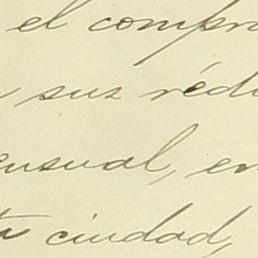 el compro
sus rédi
ensual, en
ta ciudad,